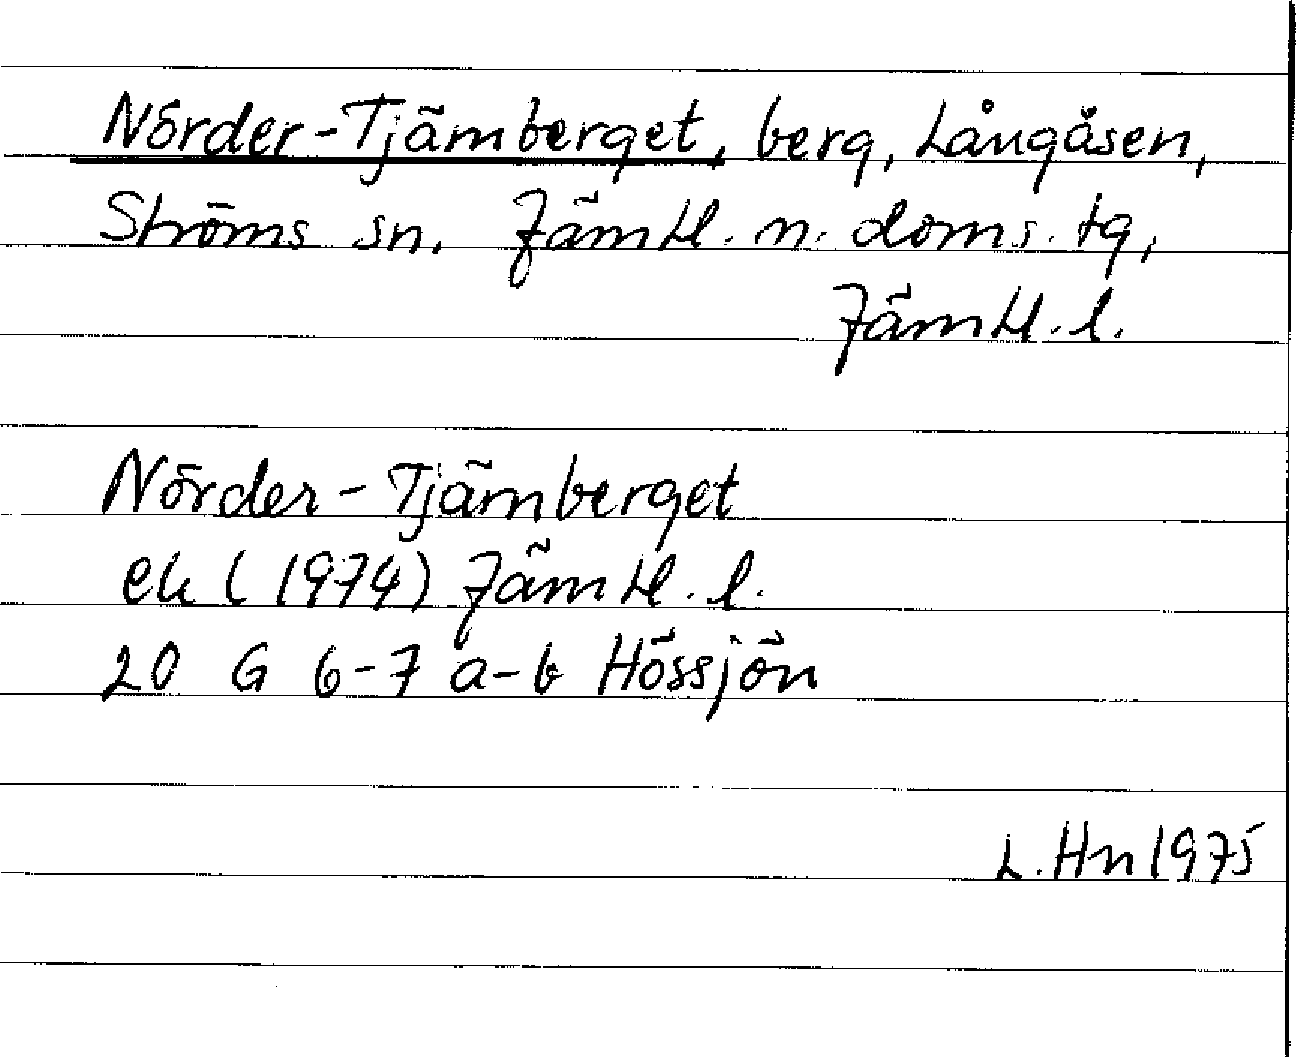 Nörder-Tjämberget, berg, Långåsen,
Ströms sn, Jämtl. n. doms. tg,
Jämtl. l.
Nörder-Tjämberget
ek (1974) Jämtl. l.
20 G 6-7 a-b Hössjön
L. Hn 1975